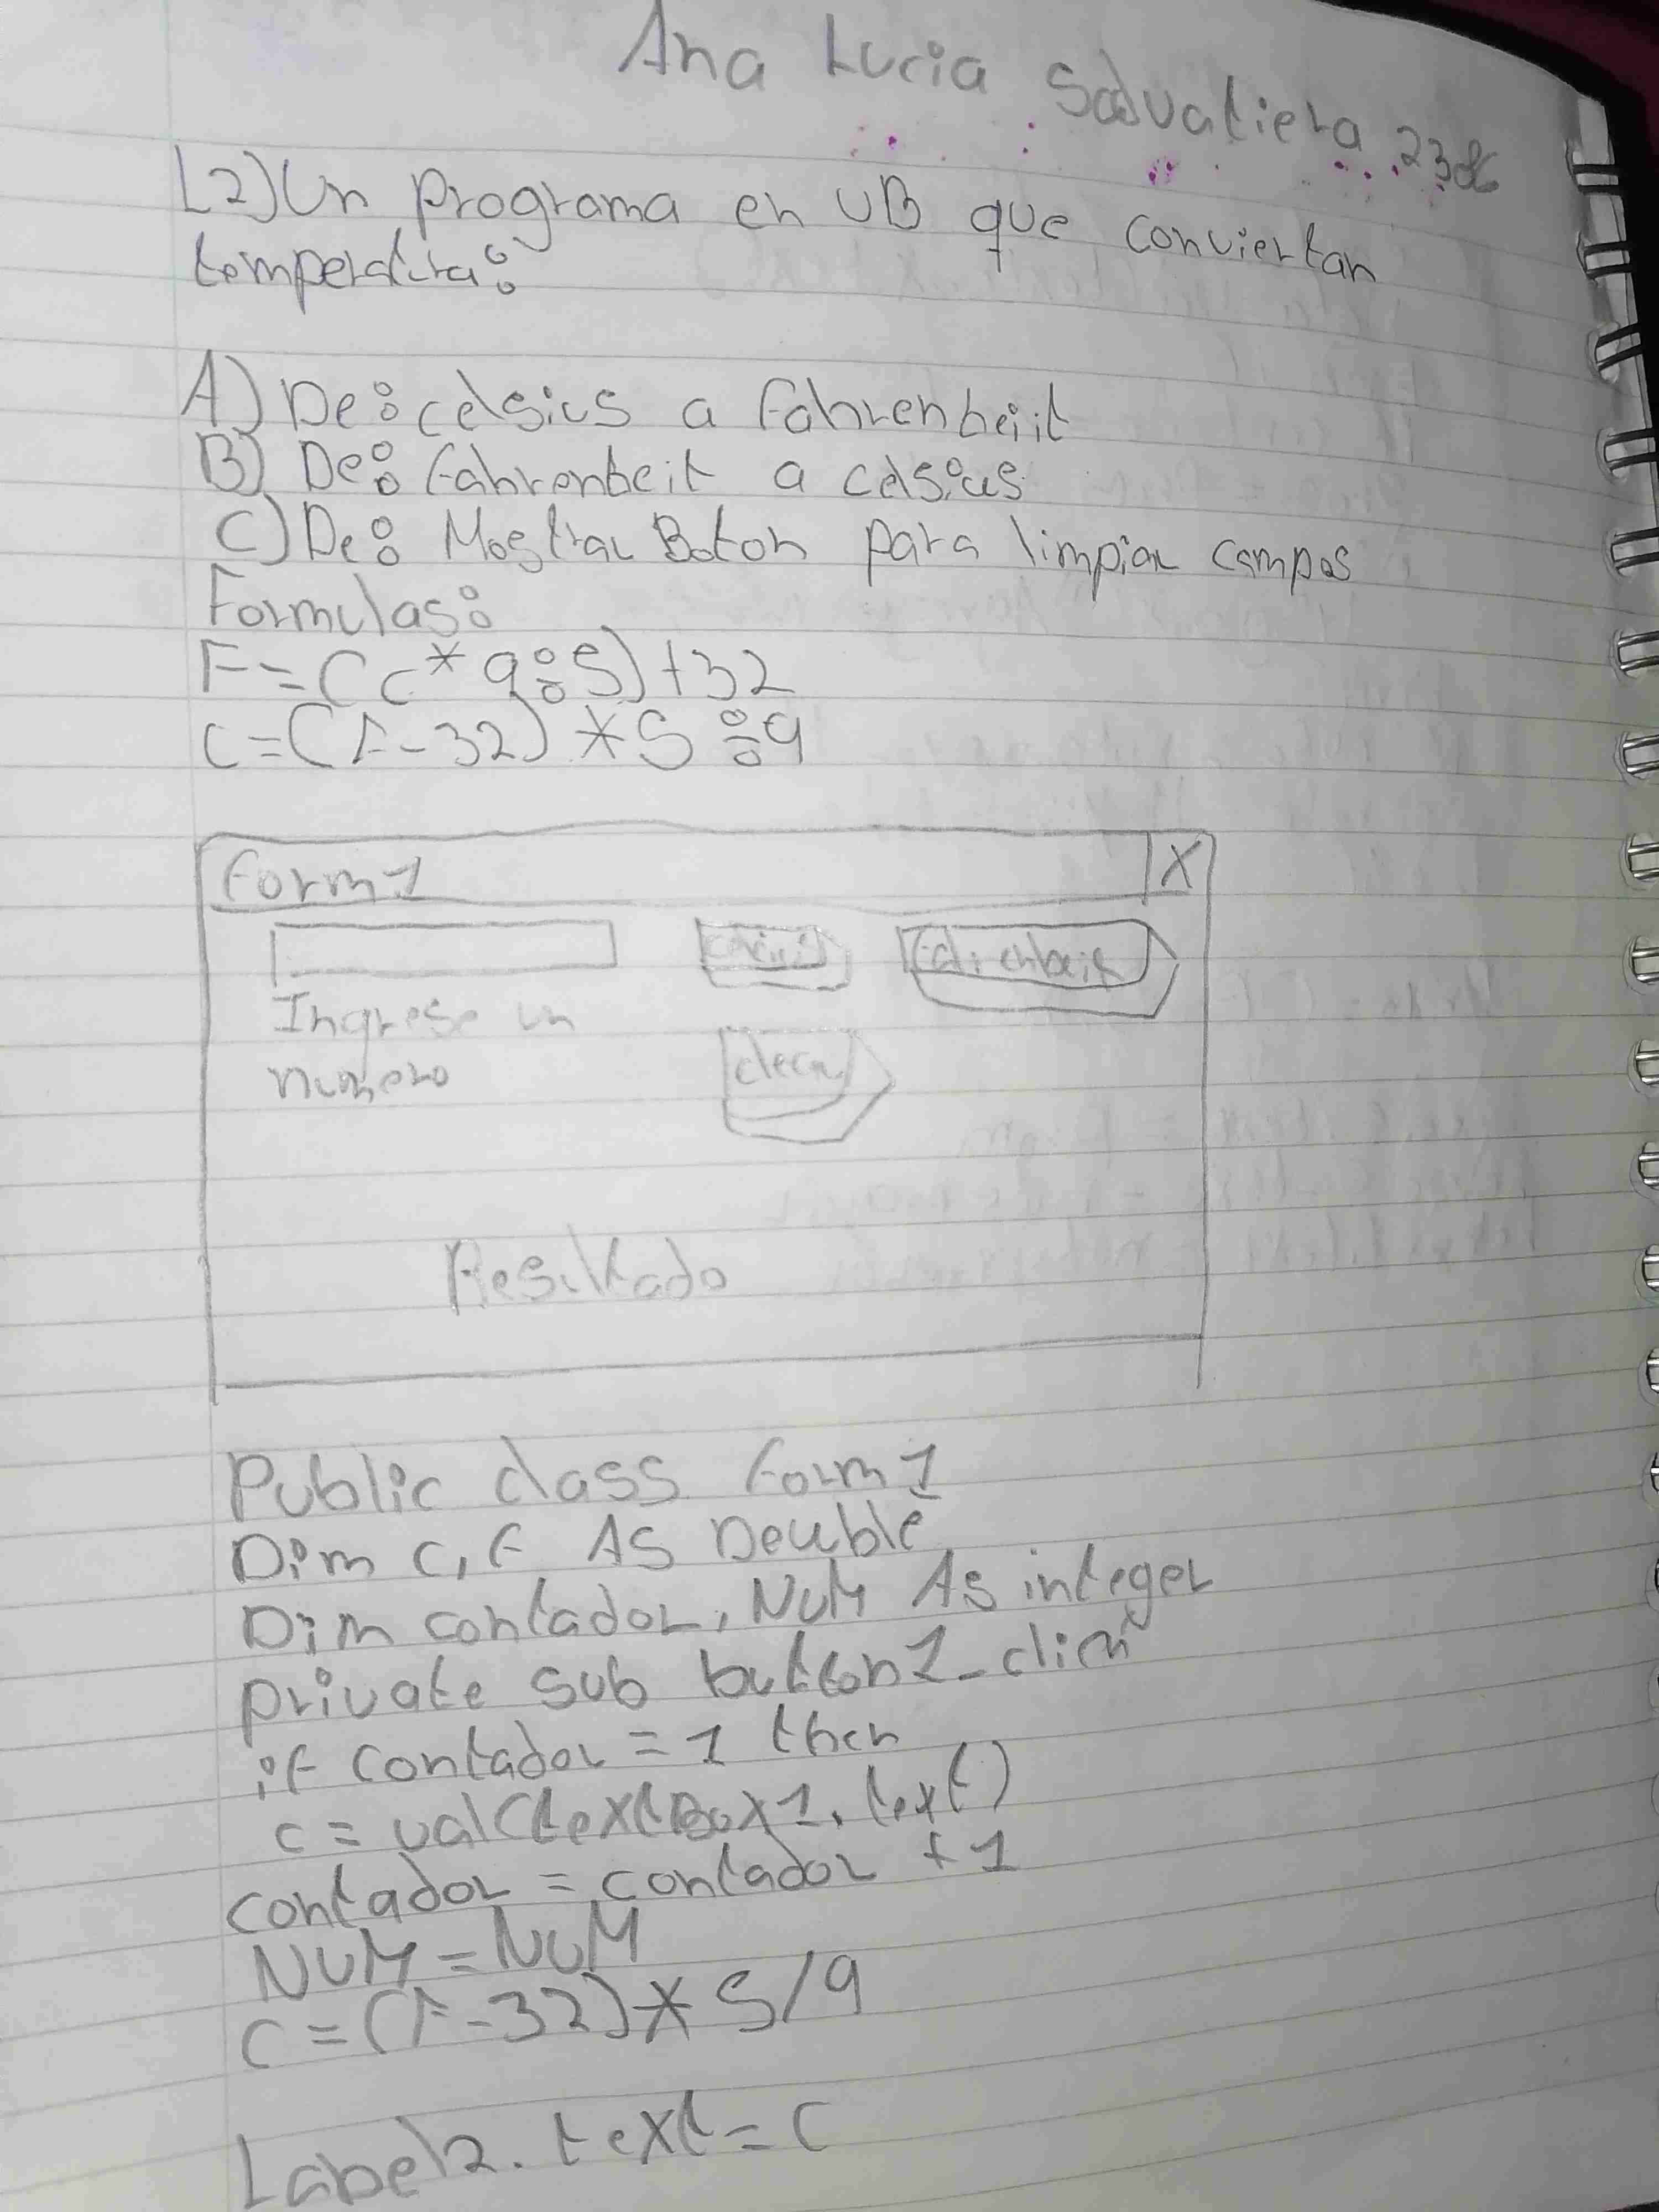 Ana Lucia Salvatiera 23
L2) Un programa en VB que conviertan
temperatura:
A) De: celsius a fahrenheiit
B) De: fahrenheit a celsius
C) De: Mostrar Boton para limpiar campos
Formulas:
F=(c*9÷5)+32
C=(F-32)*5÷9
Form1 X
celsius fahrenheit
Ingrese un
numero
clear
Resultado
Public class Form1
Dim C, F As Deuble
Dim contador, NUM As integer
private sub button1_click
if contador = 1 then
c = val(textBox1.text)
contador = contador + 1
NUM = NUM
C = (F-32)*5/9
Label2.text = C